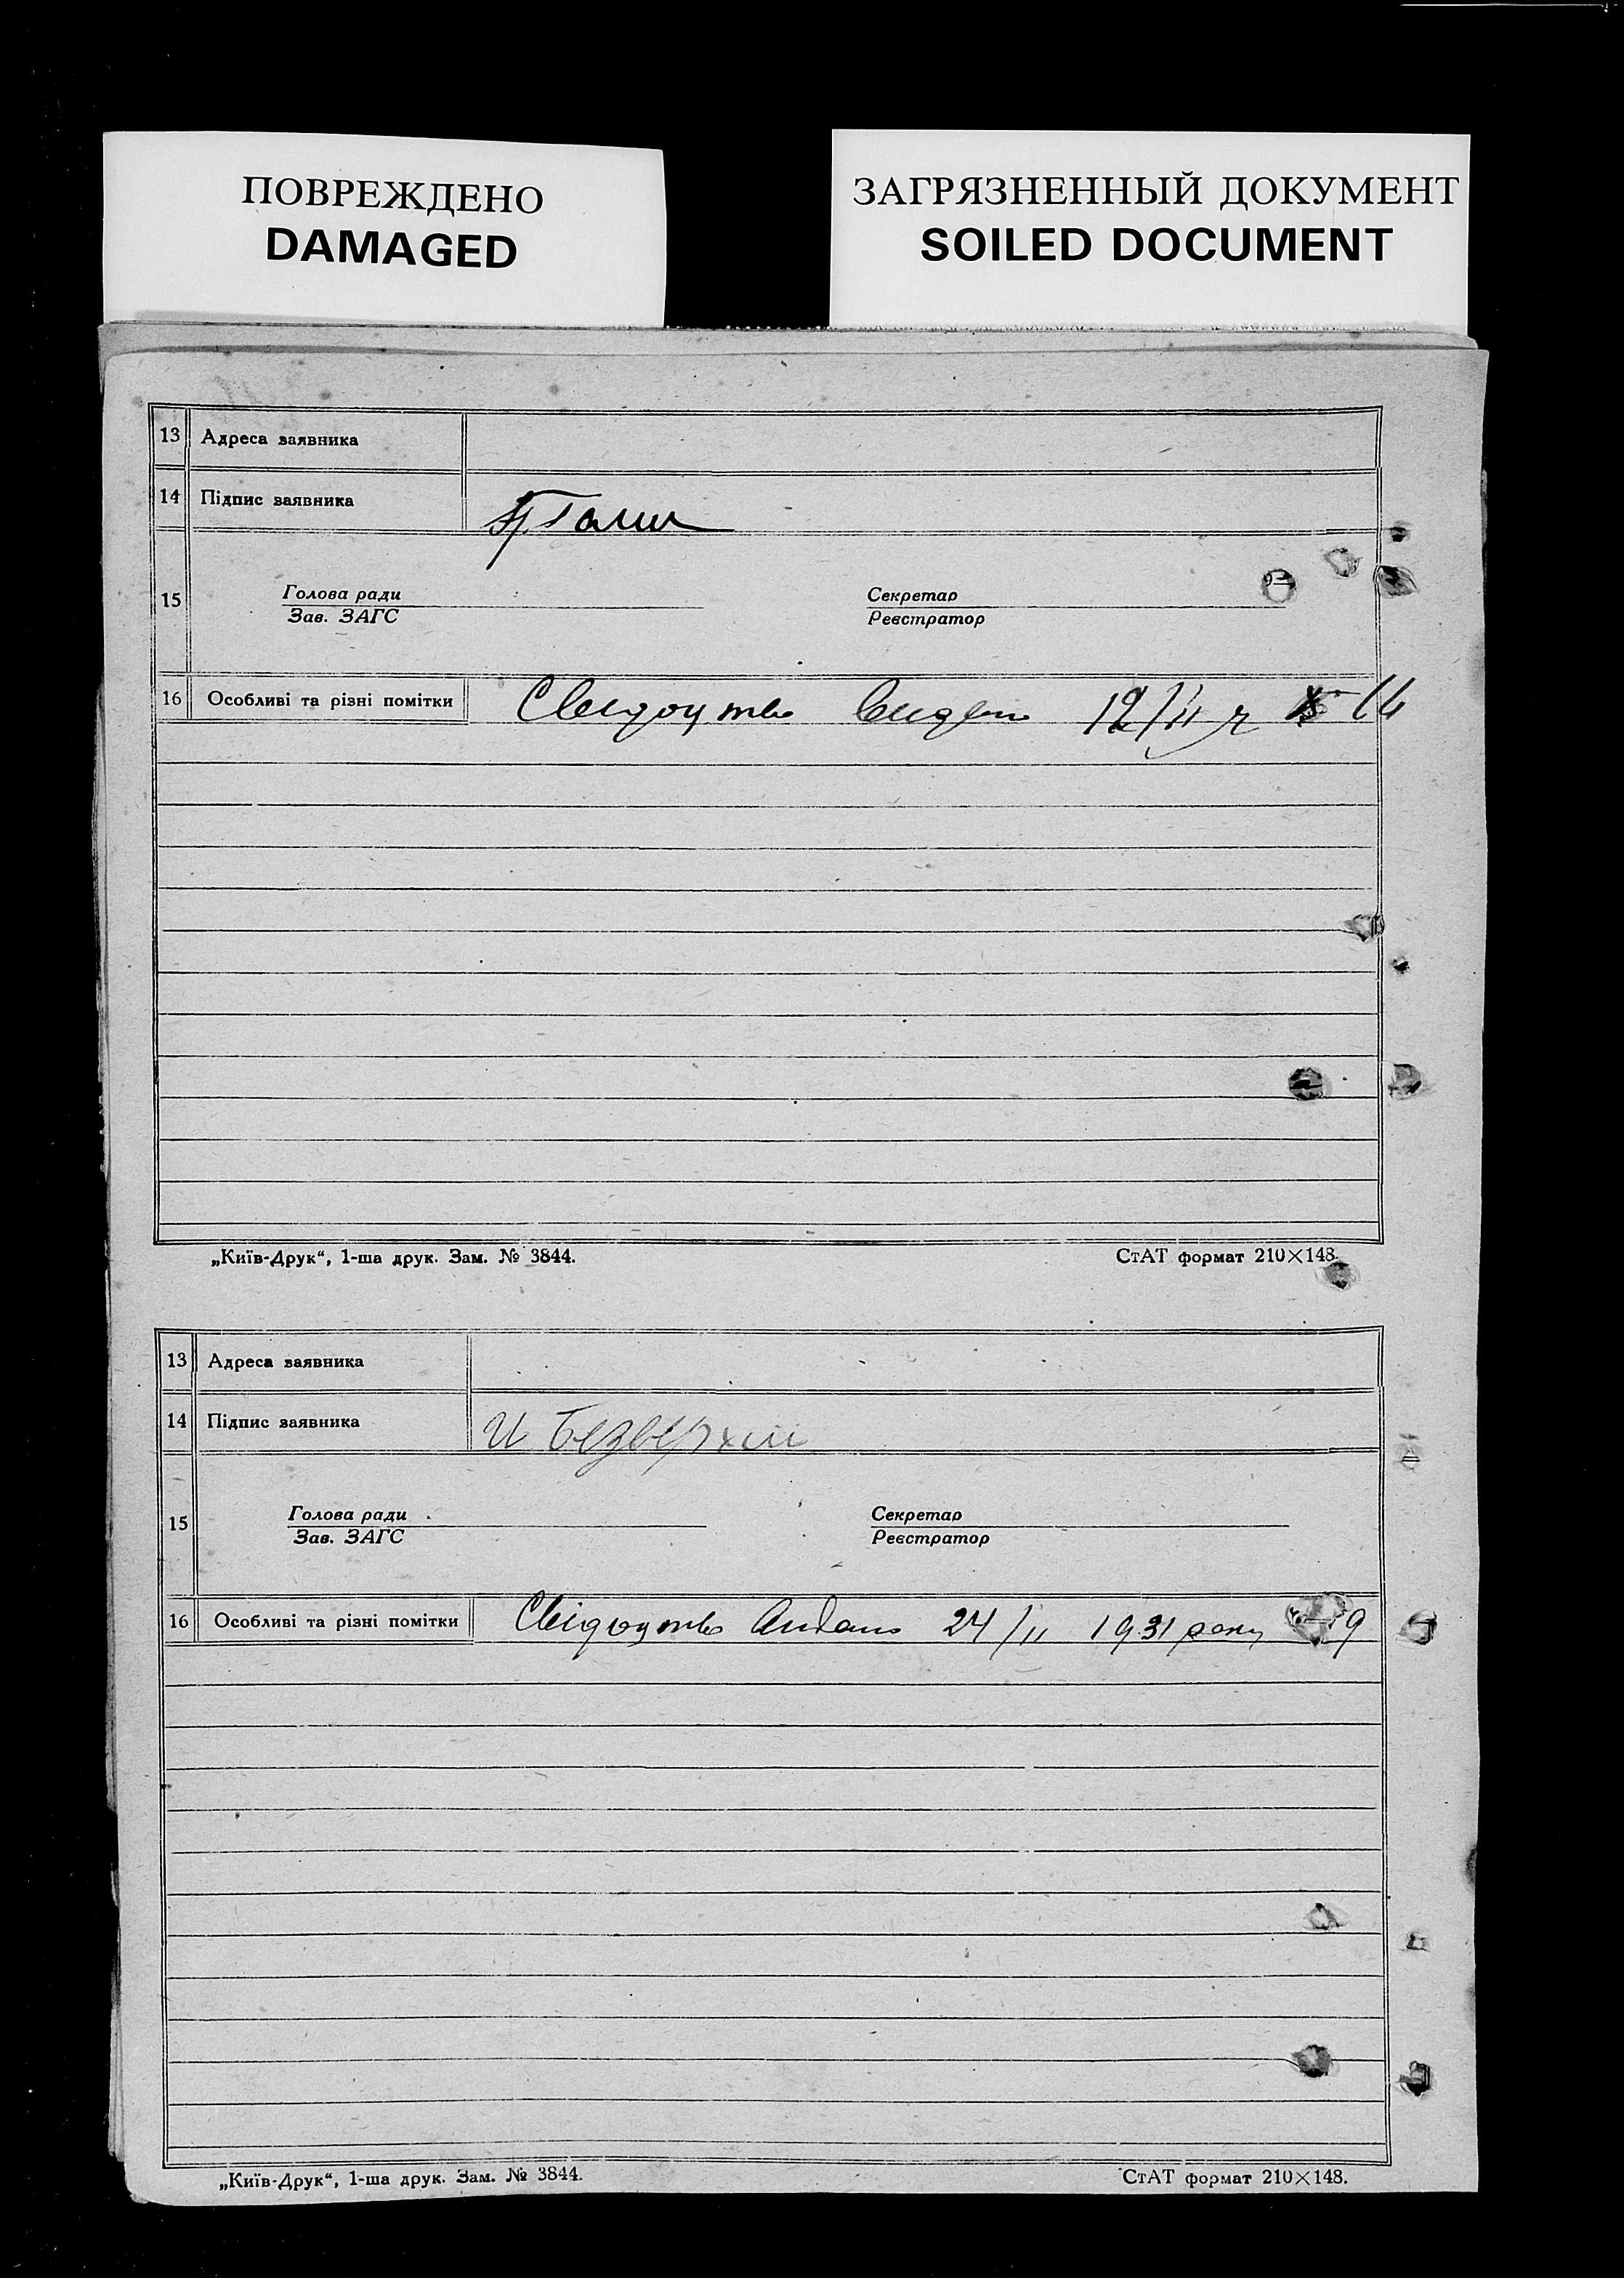 ПОВРЕЖДЕНО
DAMAGED
ЗАГРЯЗНЕННЫЙ ДОКУМЕНТ
SOILED DOCUMENT
13 Адреса заявника
14 Підпис заявника
15 Голова ради Секретар
Зав. ЗАГС Реєстратор
16 Особливі та різні помітки Свидоцтво видано 12/II
„Київ-Друк“, 1-ша друк. Зам. № 3844. СтАТ формат 210×148.
13 Адреса заявника
14 Підпис заявника И Безверхий
15 Голова ради Секретар
Зав. ЗАГС Реєстратор
16 Особливі та різні помітки Свідоцтво видано 24/II 1931 року
„Київ-Друк“, 1-ша друк. Зам. № 3844. СтАТ формат 210×148.